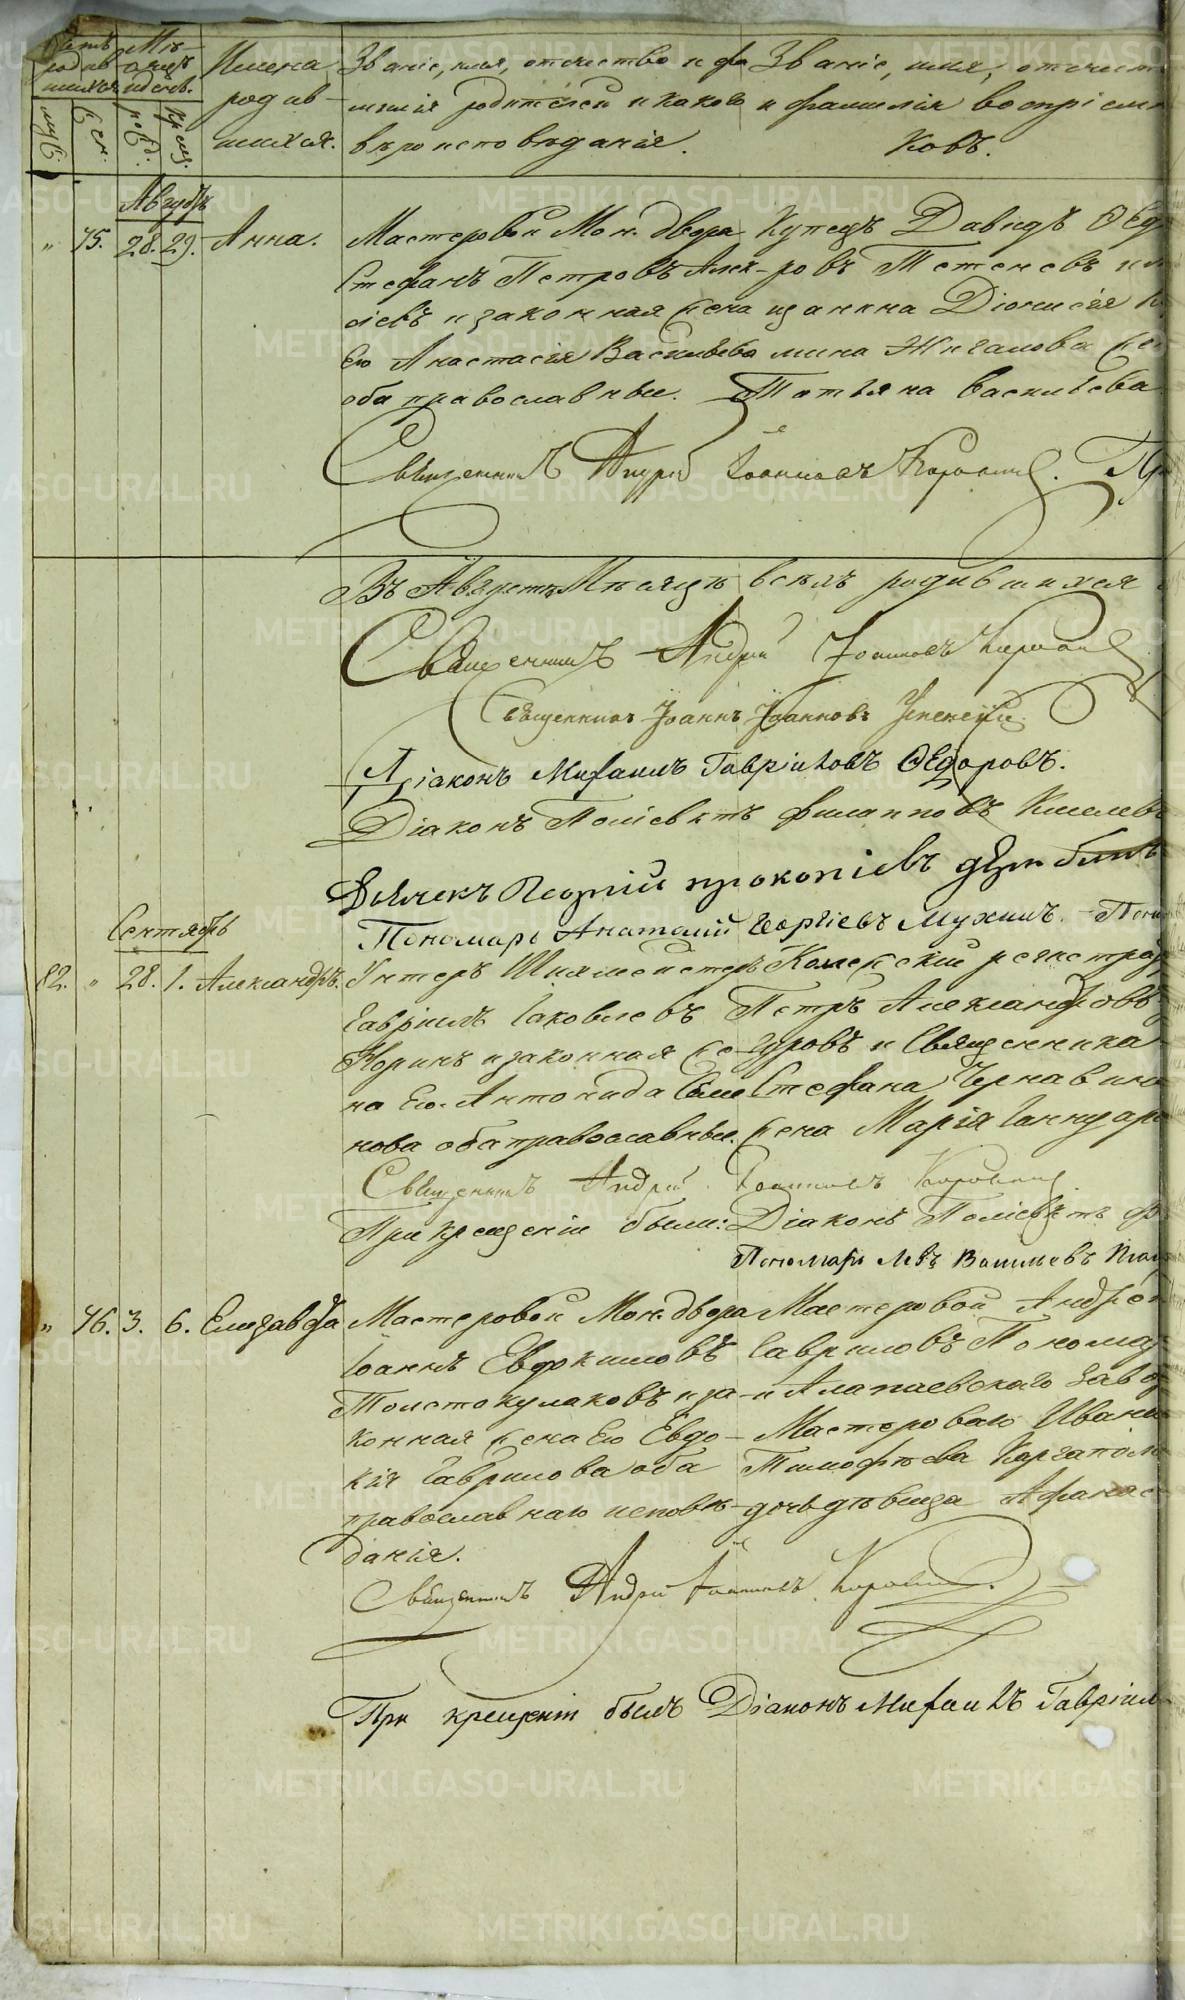 Счетъ родившихся
Мѣсяцъ и день.
муж.
жен.
рожд.
крещ.
Имена родившихся.
Званіе, имя, отчество и фамилія родителей и какого вѣроисповѣданія.
Званіе, имя, отчест
и фамилія воспріем
ковъ.
Августъ
" 75. 28. 29. Анна.
Мастеровой Мон. двора
Стефанъ Петровъ Алек-
сіевъ и законная жена
Его Анастасія Васильева
оба православные.
Купецъ Давидъ Ѳед
ровъ Тетеневъ и м
щанина Діонисія
мина Жигалова же
Татьяна Васильева
Священникъ Андрей Іоанновъ Коровинъ. Пр
Въ Августѣ Мѣсяцѣ всѣхъ родившихся
Священникъ Андрей Іоанновъ Коровин
Священникъ Іоаннъ Іоанновъ Успенскій
Діаконъ Михаилъ Гавріиловъ Ѳедоровъ.
Діаконъ Поліевктъ Филипповъ Киселевъ
Дьячекъ Георгій Прокопіевъ
Пономарь Анатолій Георгіевъ Мухинъ. Поно
Сентябрь
82. " 28. 1. Александръ.
Унтеръ Шихмейстеръ
Гавріилъ Іаковлевъ
Коринъ и законная же-
на Его Антонида Семе
нова оба православные.
Колежскій регистра
Петръ Александровъ
и Священника
Стефана Чернавина
жена Марія Ианнуар
Священникъ Андрей Іоанновъ Коровинъ
При крещеніи были: Діаконъ Поліевктъ Ф
Пономарь Левъ Васильевъ
" 76. 3. 6. Елизавета
Мастеровой Мон. двора
Іоаннъ Евфимовъ
Толстокулаковъ и за-
конная жена Его Евдо-
кія Гаврилова оба
православнаго исповѣ-
данія.
Мастеровой Андрей
Гавриловъ Пономар
и Алапаевскаго Завод
Мастероваго Ивана
Тимофѣева Каргапол
дочь дѣвица Афанас
Священникъ Андрей Іоанновъ Коровинъ.
При крещеніи былъ Діаконъ Михаилъ Гавріил
METRIKI.GASO-URAL.RU